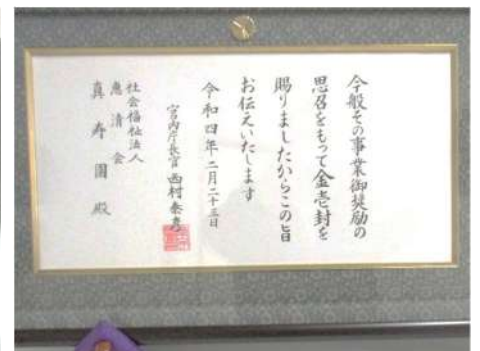 今般その事業御奨励の
思召をもって金壱封を
賜りましたからこの旨
お伝えいたします
令和四年二月二十三日
宮内庁長官 西村泰彦
社会福祉法人
恵清会
真寿園殿